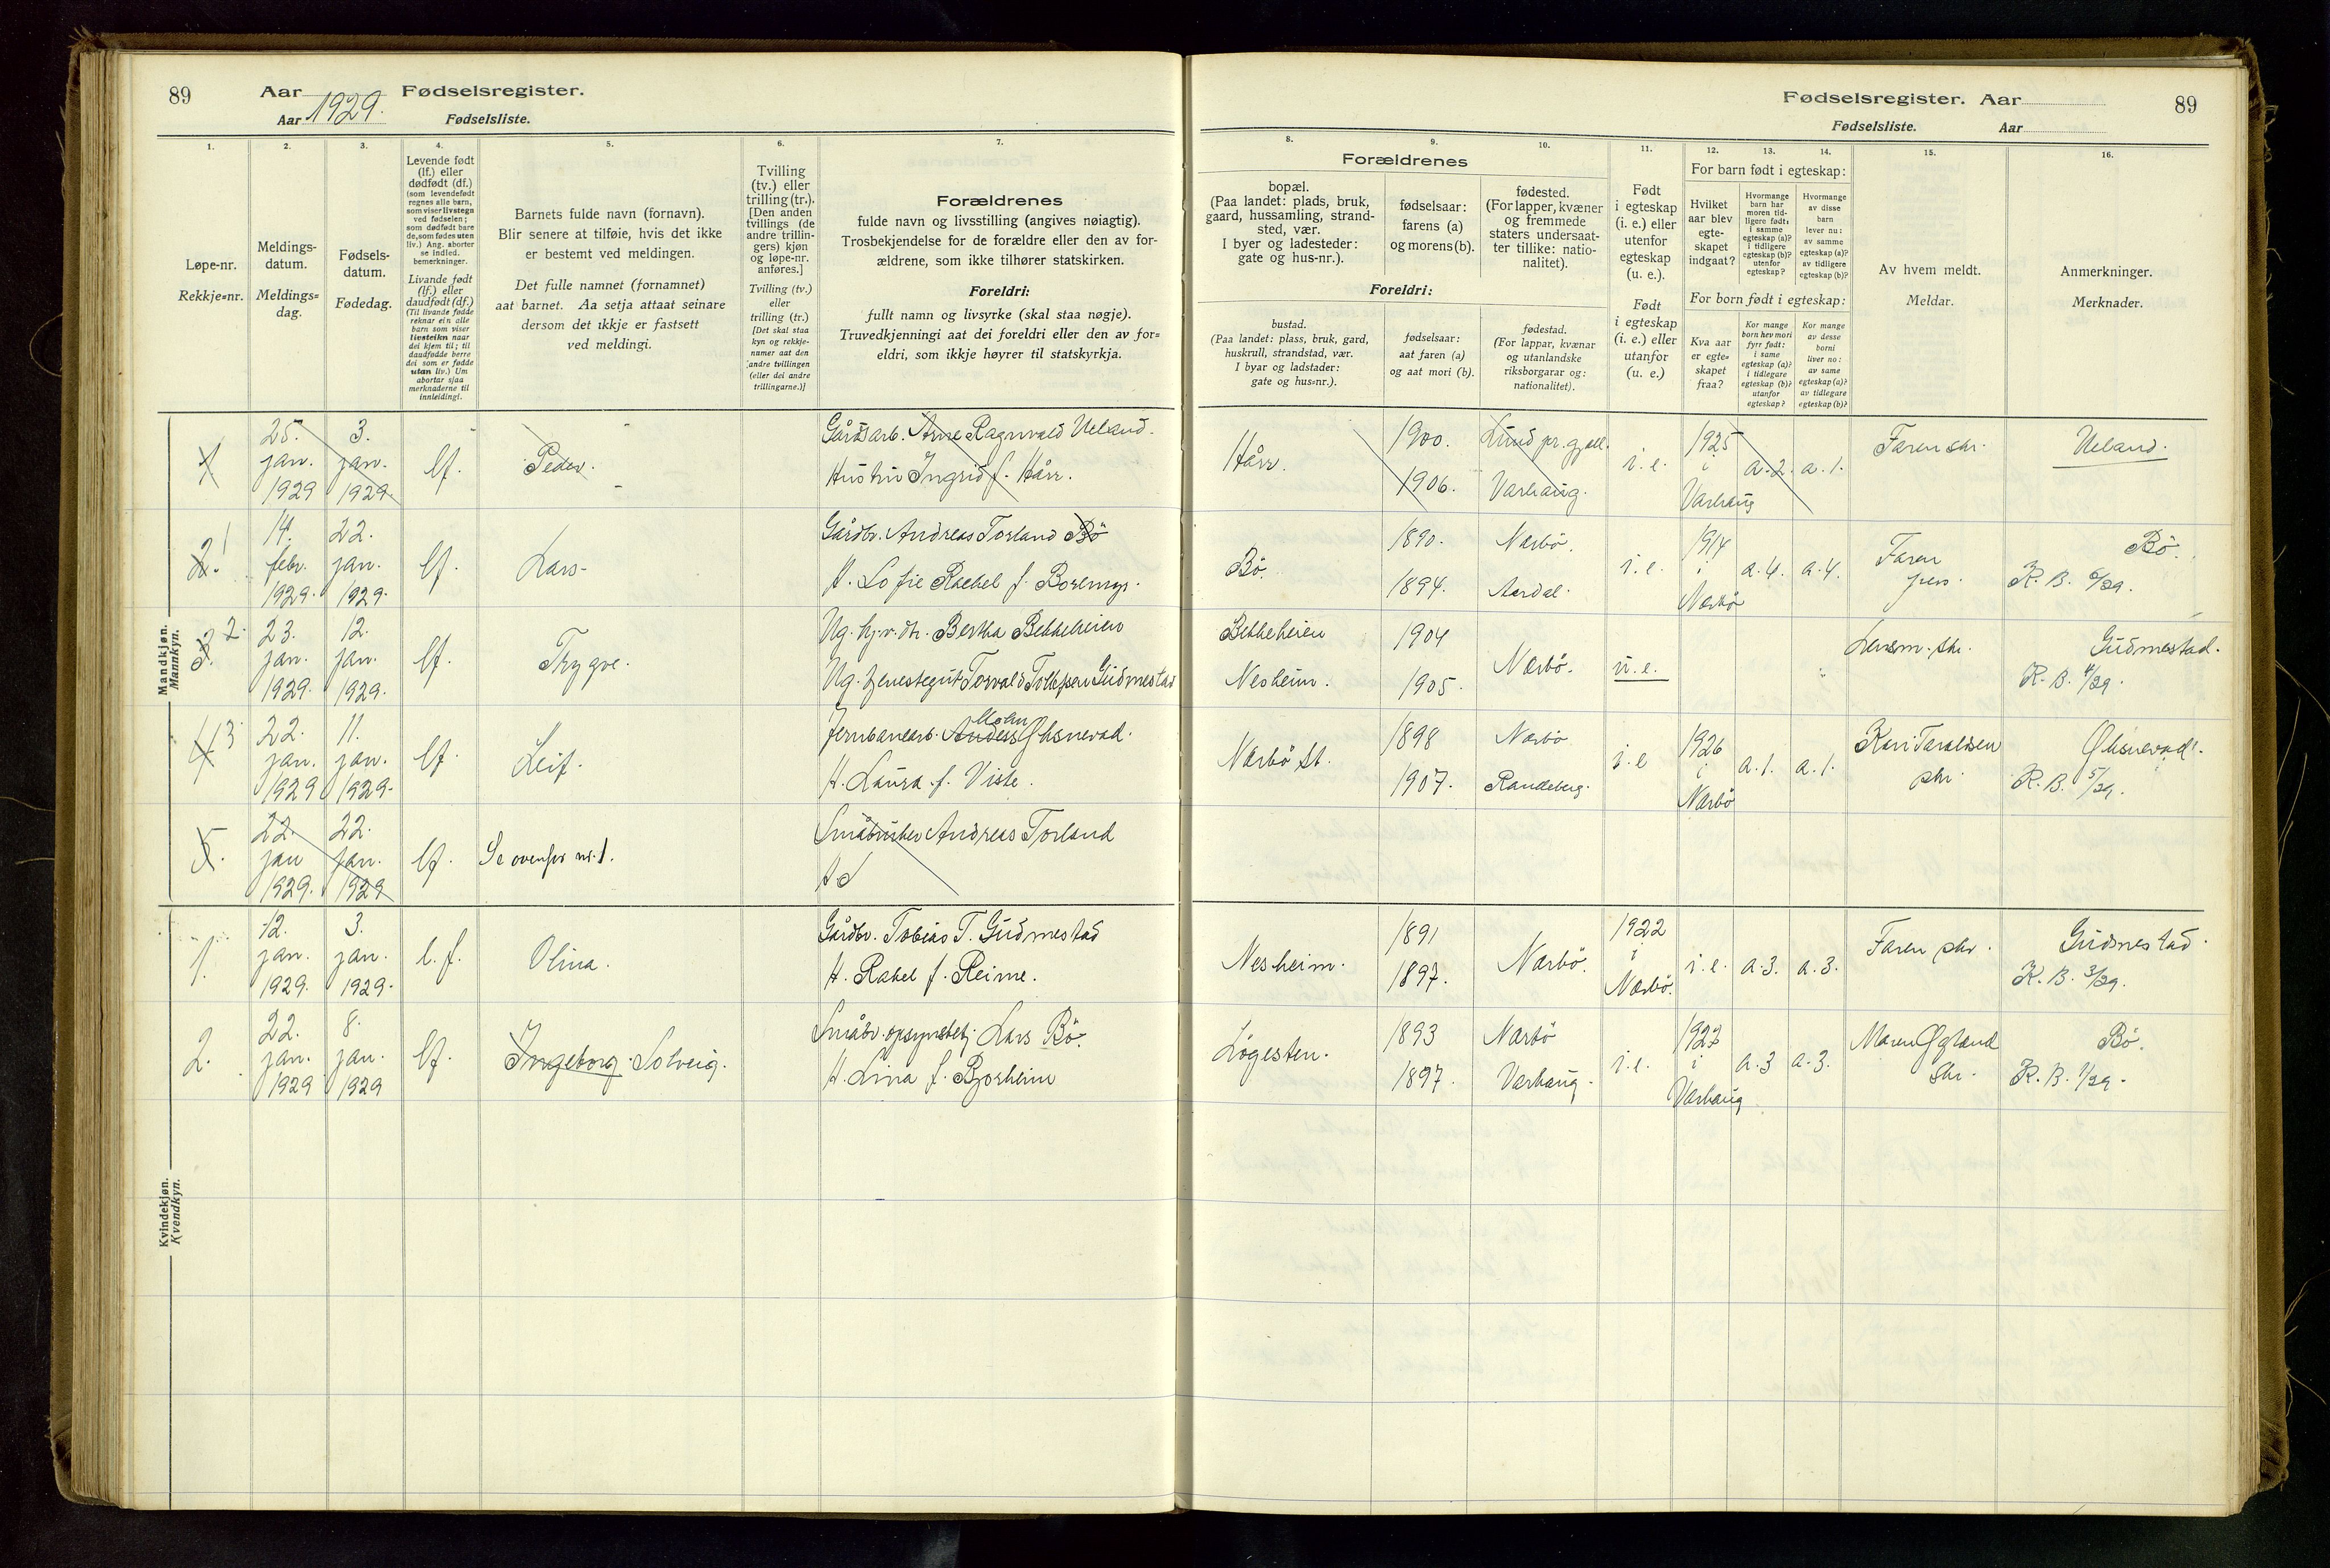 89
Aar 1929. Fødselsregister.
Aar Fødselsliste.
1.
2.
3.
4.
5.
6.
7.
Løpe-nr.
Rekkje=nr.
Meldings-
datum.
Meldings=
dag.
Fødsels-
datum.
Fødedag.
Levende født
(lf.) eller
dødfødt (df.)
(som levendefødt
regnes alle barn,
som viser livstegn
ved fødselen;
som dødfødt bare
de, som fødes uten
liv.) Ang. aborter
se indled.
bemerkninger.
Livande født
(lf.) eller
daudfødt (df.)
(Til livande fødde
reknar ein alle
barn som viser
livsteikn naar
dei kjem til; til
daudfødde berre
dei som er fødde
utan liv.) Um
abortar sjaa
merknaderne til
innleidingi.
Barnets fulde navn (fornavn).
Blir senere at tilføie, hvis det ikke
er bestemt ved meldingen.
Det fulle namnet (fornamnet)
aat barnet. Aa setja attaat seinare
dersom det ikkje er fastsett
ved meldingi.
Tvilling
(tv.) eller
trilling (tr.).
[Den anden
tvillings (de
andre trillin-
gers) kjøn
og løpe-nr.
anføres.]
Tvilling (tv.)
eller
trilling (tr.)
[Det skal staa
kyn og rekkje-
numer aat den
andre tvillingen
(eller dei andre
trillingarne.)]
Forældrenes
fulde navn og livsstilling (angives nøiagtig).
Trosbekjendelse for de forældre eller den av for-
ældrene, som ikke tilhører statskirken.
Foreldri:
fullt namn og livsyrke (skal staa nøgje).
Truvedkjenningi aat dei foreldri eller den av for=
eldri, som ikkje høyrer til statskyrkja.
Mandkjøn.
Mannkyn.
1
25.
jan.
1929
3.
jan.
1929.
lf.
Peder.
Gårdsarb. Arne Ragnvald Ueland.
Hustru Ingrid f. Hårr.
2. 1
14.
febr.
1929.
22.
jan.
1929.
lf.
Lars
Gårdbr. Andreas Torland Bö
H. Sofie Rachel f.
3. 2.
23.
jan.
1929.
12.
jan.
1929.
lf.
Trygve.
Ug. hj.v. dtr. Bertha Bekkeheien
Ug. tjenestegut Torvald Tollefsen Gudmestad
4 3
22.
jan.
1929
11.
jan.
1929.
lf.
Leif.
Jernbanearb. Anders
H. Laura f. Viste.
5.
22.
jan
1929.
22.
jan.
1929
lf.
Se ovenfor nr. 1.
Småbruker Andreas Torland
H S
Kvindekjøn.
Kvendkyn.
1.
12.
jan.
1929.
3.
jan.
1929.
l.f.
Olina.
Gårdbr. Tobias T. Gudmestad
H. Rakel f. Reime.
2.
22.
jan.
1929
8.
jan.
1929
lf.
Ingeborg Solveig.
Småbr. opsynsbetj. Lars Bö.
H. Lina f. Bjorheim
Fødselsregister. Aar
89
Fødselsliste. Aar
8.
9.
10.
11.
12.
13.
14.
15.
16.
Forældrenes
bopæl.
(Paa landet: plads, bruk,
gaard, hussamling, strand-
sted, vær.
I byer og ladesteder:
gate og hus-nr.).
fødselsaar:
farens (a)
og morens (b).
fødested.
(For lapper, kvæner
og fremmede
staters undersaat-
ter tillike: natio-
nalitet).
Foreldri:
bustad.
(Paa landet: plass, bruk, gard,
huskrull, strandstad, vær.
I byar og ladstader:
gate og hus=nr.).
fødselsaar:
aat faren (a)
og aat mori (b).
fødestad.
(For lappar, kvænar
og utanlandske
riksborgarar og:
nationalitet).
Født
i egteskap
(i. e.) eller
utenfor
egteskap
(u. e.).
Født
i egteskap
(i. e.) eller
utanfor
(u. e.)
For barn født i egteskap:
Hvilket
aar blev
egte-
skapet
indgaat?
Hvormange
barn har
moren tid-
ligere født:
i samme
egteskap (a)?
i tidligere
egteskap (b)?
utenfor
egteskap?
Hvormange
av disse
barn
lever nu:
av samme
egteskap (a)?
av tidligere
egteskap (b)?
For born født i egteskap:
Kva aar
er egte=
skapet
fraa?
Kor mange
born hev mori
fyrr født:
i same
egteskap (a)?
i tidlegare
egteskap (b)?
utanfor
egteskap?
Kor mange
av desse
borni
liver no:
av same
egteskap (a)?
av tidlegare
egteskap (b)?
Av hvem meldt.
Meldar.
Anmerkninger.
Merknader.
Hårr.
1900.
1906.
Lund pr.gjell.
Varhaug.
i. e.
1925
i
Varhaug
a. 2.
a. 1.
Faren skr.
Ueland.
Bö.
1890.
1894.
Nærbö.
Aardal.
i. e.
1914
i
Nærbö
a. 4.
a. 4.
Faren
pers.
Bö.
K. B. 6/29.
Bekkeheien
Nesheim.
1904
1905.
Nærbö.
u. e.
Lensm. skr.
Gudmestad.
K. B. 4/29.
Nærbö st.
1898
1907.
Nærbö
Randeberg.
i. e
1926
i
Nærbö
a. 1.
a. 1.
Kari Taraldsen
skr.
K. B. 5/29.
Nesheim.
1891
1897.
Nærbö.
1922
i
Nærbö.
i. e.
a. 3.
a. 3.
Faren skr.
Gudmestad.
K. B. 3/29.
Lögesten.
1893
1897.
Nærbö
Varhaug.
i. e.
1927
i
Varhaug
a. 3
a. 3.
Maren Øgland
Skr.
Bö.
K. B. 7/29.